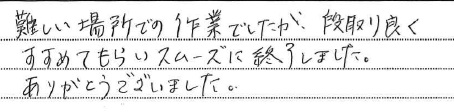 難しい場所での作業でしたが、段取り良く
すすめてもらいスムーズに終了しました。
ありがとうございました。